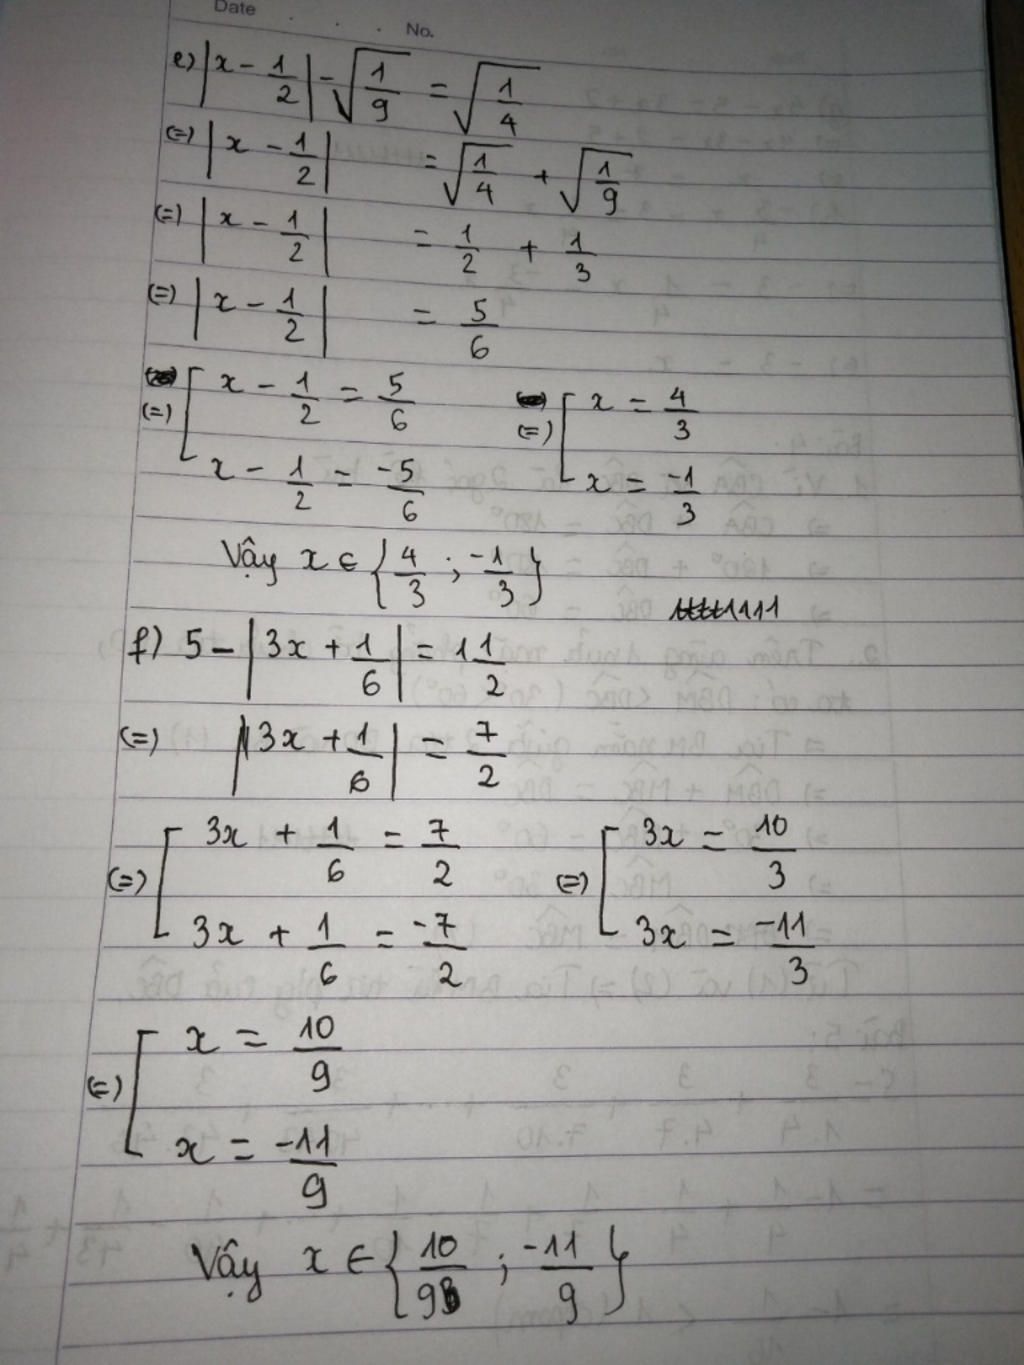 Date . . . No.
e) |x - 1/2| - √(1/9) = √(1/4)
(=) |x - 1/2| = √(1/4) + √(1/9)
(=) |x - 1/2| = 1/2 + 1/3
(=) |x - 1/2| = 5/6
(=) [ x - 1/2 = 5/6 (=) [ x = 4/3
x - 1/2 = -5/6 x = -1/3
Vậy x ∈ {4/3 ; -1/3}
f) 5 - |3x + 1/6| = 1 1/2
(=) |3x + 1/6| = 7/2
(=) [ 3x + 1/6 = 7/2 (=) [ 3x = 10/3
3x + 1/6 = -7/2 3x = -11/3
(=) [ x = 10/9
x = -11/9
Vậy x ∈ {10/9 ; -11/9}